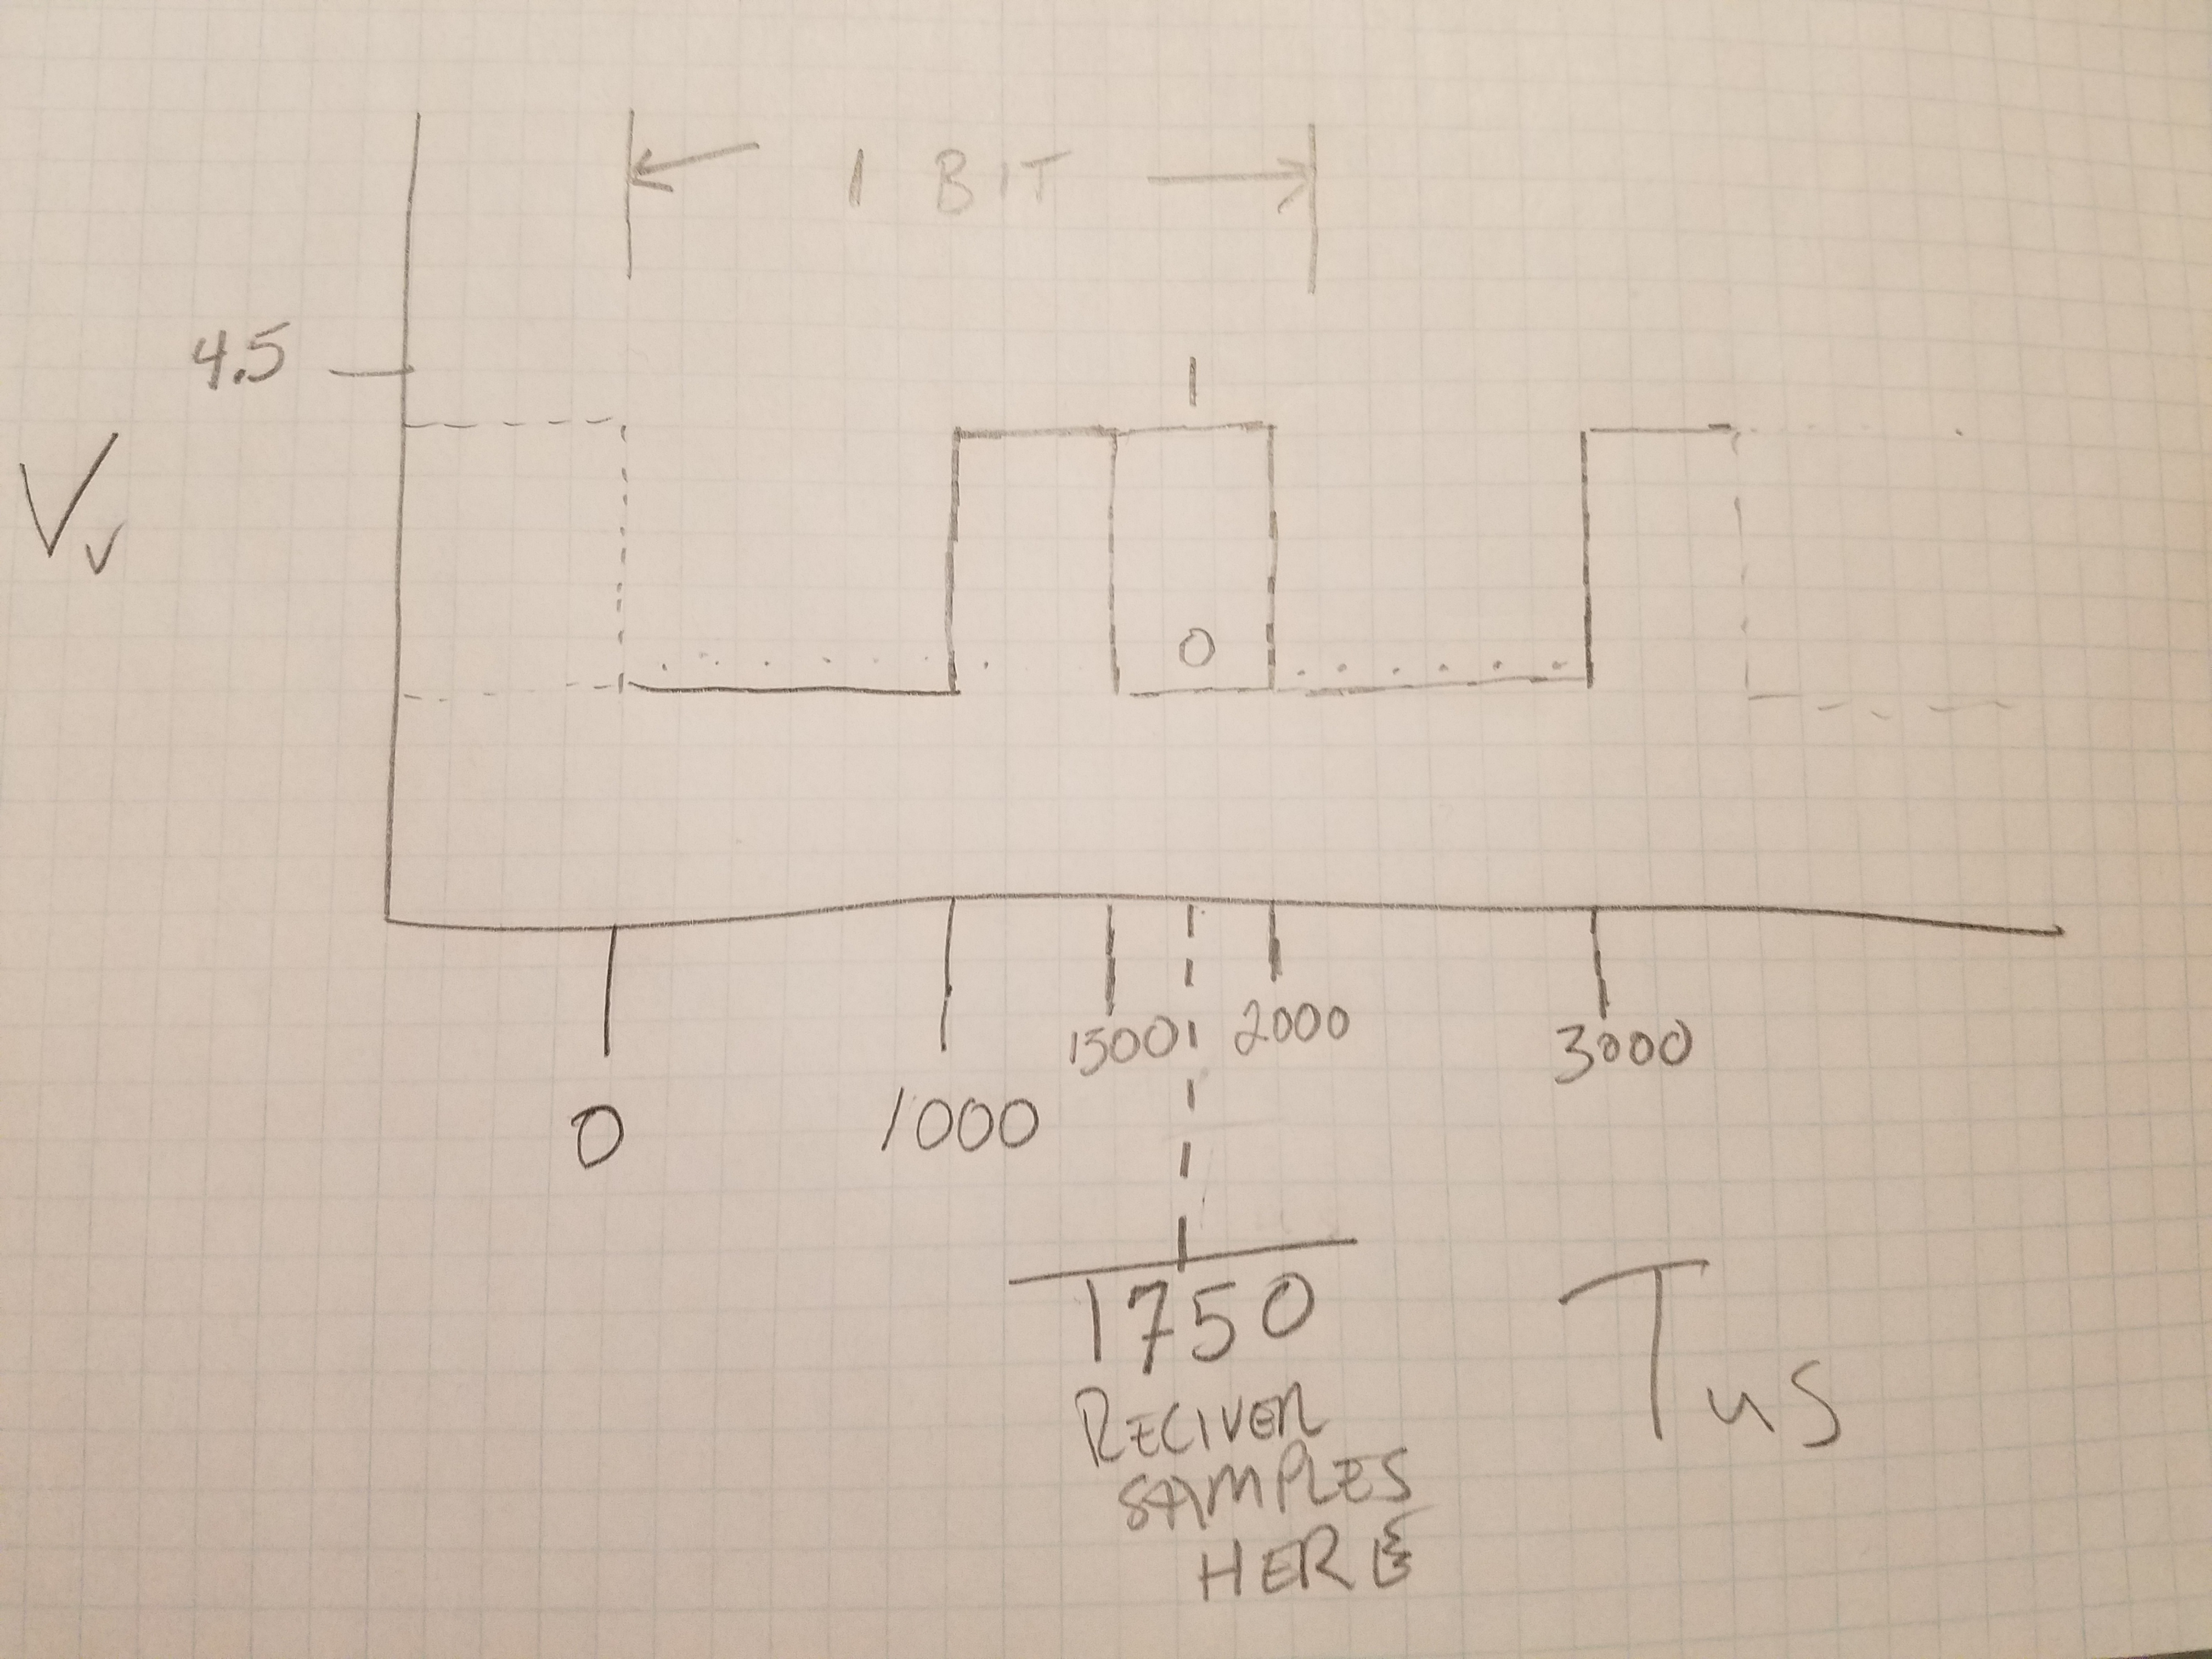 1 BIT
4.5
1
Vv
0
1500 2000 3000
0 1000
1750
RECIVER
SAMPLES
HERE
Tus